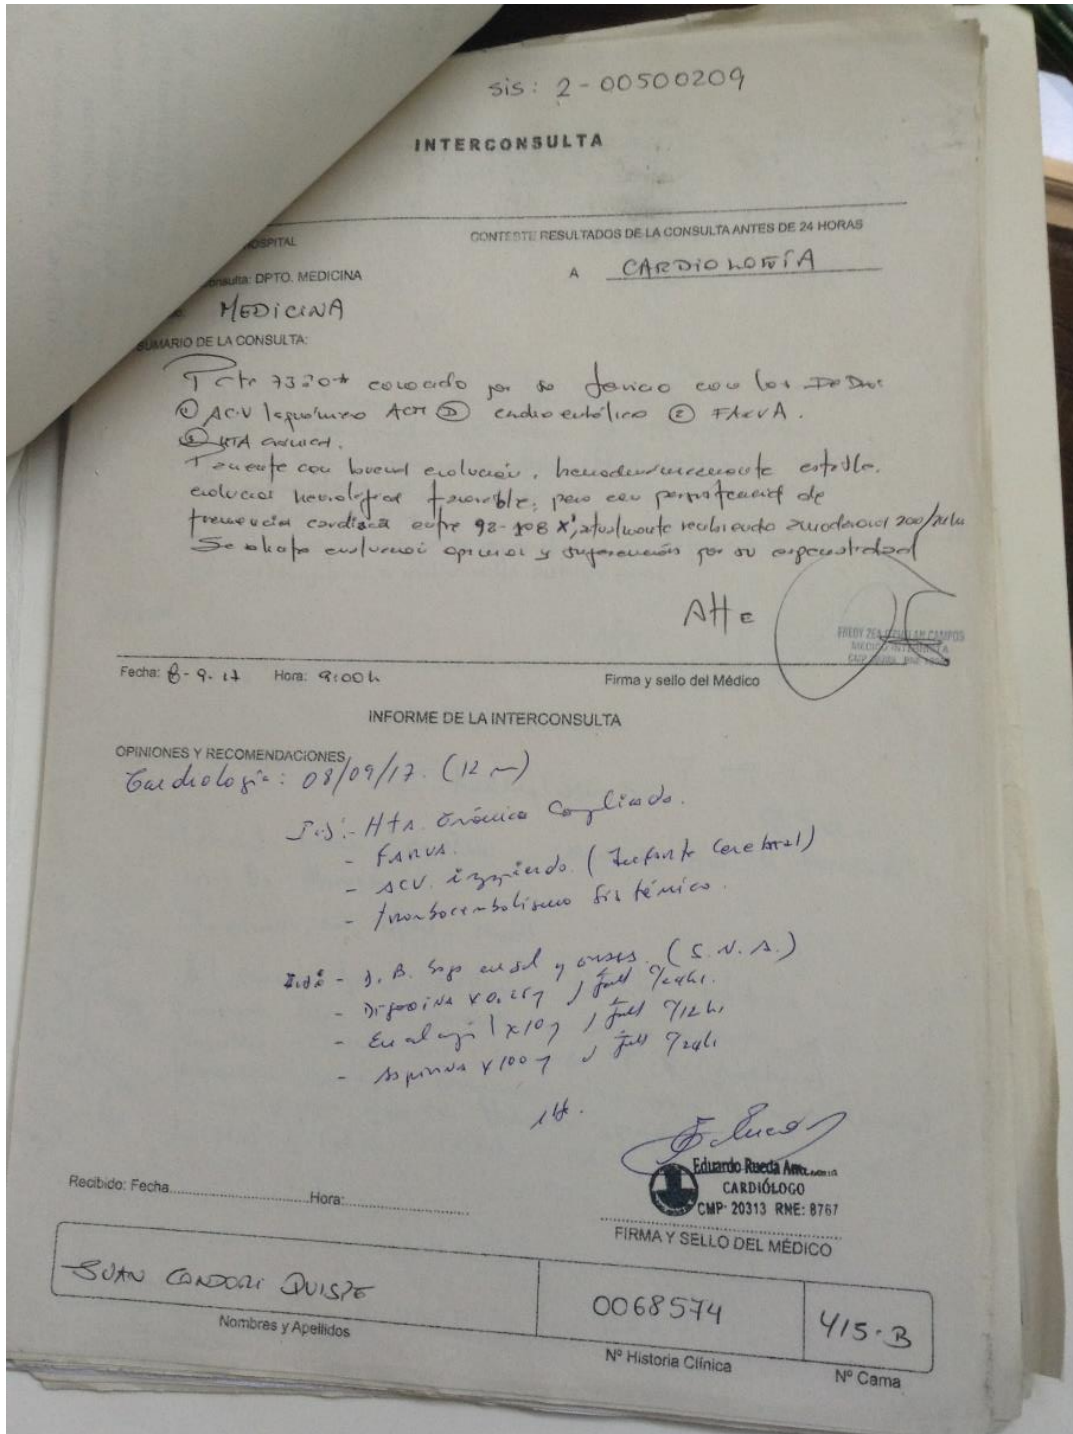 sis: 2-00500209
INTERCONSULTA
HOSPITAL
CONTESTE RESULTADOS DE LA CONSULTA ANTES DE 24 HORAS
onsulta: DPTO. MEDICINA
A CARDIOLOGÍA
MEDICINA
SUMARIO DE LA CONSULTA:
Pcte conocido por su servicio con los
① ACV isquémico ACM Ⓓ cardioembólico ② FARVA.
③ HTA crónica.
Paciente con buena evolución, hemodinamicamente estable,
evolución neurológica favorable, pero con persistencia de
frecuencia cardiaca entre 98-108 X', actualmente recibiendo amiodarona 200/24h
Se evaluación opinión y sugerencias por su especialidad
Atte
FREDY ZEA CAMPOS
MEDICO INTERNISTA
Fecha: 8-9-17 Hora: 9:00h
Firma y sello del Médico
INFORME DE LA INTERCONSULTA
OPINIONES Y RECOMENDACIONES
Cardiología: 08/09/17. (12 m)
- HTA. Crónica Complicada.
- FARVA.
- ACV. izquierdo. (Infarto Cerebral)
- tromboembolismo Sistémico.
- D. B. en sal y grasas. (S.N.A.)
- Digoxina x 0.25 c/24h.
- Enalapril x 10 c/12h
- Aspirina x 100 c/24h
Eduardo Rueda
CARDIÓLOGO
CMP: 20313 RNE: 8767
Recibido: Fecha Hora:
FIRMA Y SELLO DEL MÉDICO
JUAN CONDORI QUISPE
0068574
415-B
Nombres y Apellidos
Nº Historia Clínica
Nº Cama